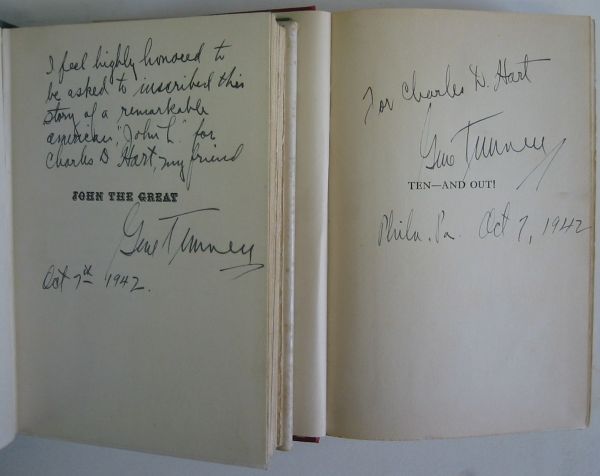 I feel highly honored to
be asked to inscribed this
story of a remarkable
american, "John L." for
Charles D Hart, my friend
JOHN THE GREAT
Gene Tunney
Oct 7th 1942.
For Charles D. Hart
Gene Tunney
TEN—AND OUT!
Phila. Pa. Oct 7, 1942